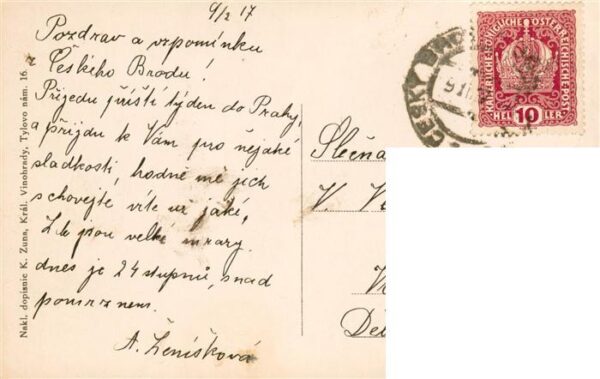 9/2 17
Pozdrav a vzpomínku
z Českého Brodu!
Přijedu příští týden do Prahy,
a přijdu k Vám pro nějaké
sladkosti, hodně mě jich
schovejte víte už jaké,
Zde jsou velké mrazy.
dnes je 24 stupňů, snad
pomrznem.
A. Ženíšková
Nakl. dopisnic K. Zuna, Král. Vinohrady, Tylovo nám. 16.
KAISERLICHE KÖNIGLICHE ÖSTERREICHISCHE POST
HELLER
10
ČESKÝ
Slečna
V.